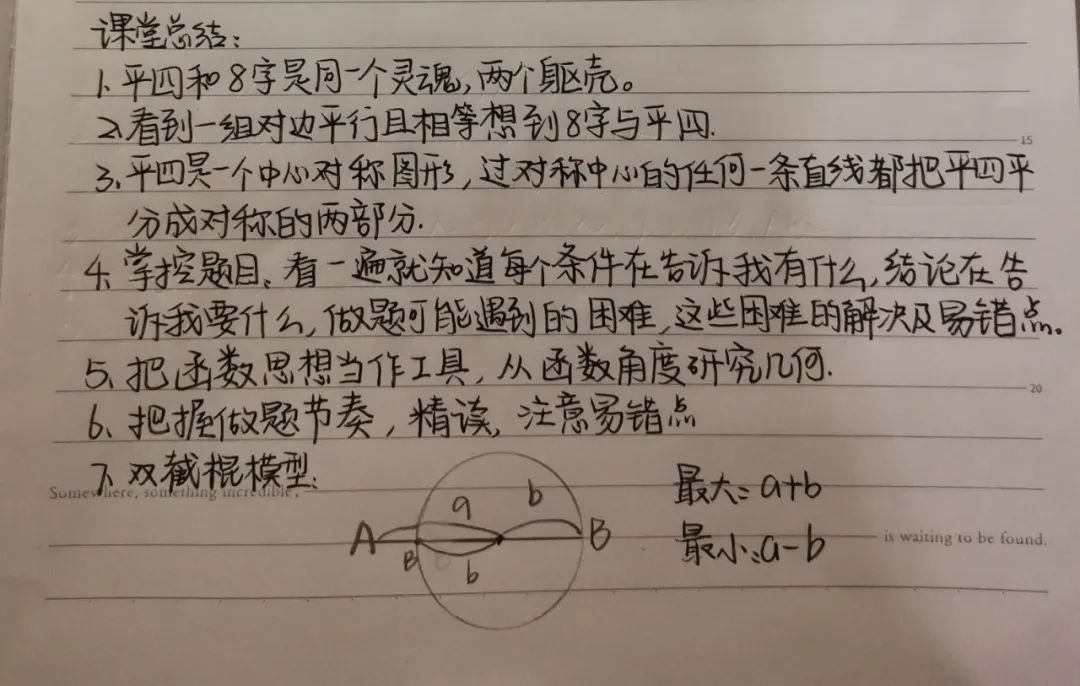 课堂总结:
1、平四和8字是同一个灵魂,两个躯壳。
2、看到一组对边平行且相等想到8字与平四.
15
3、平四是一个中心对称图形,过对称中心的任何一条直线都把平四平
分成对称的两部分.
4、掌控题目、看一遍就知道每个条件在告诉我有什么,结论在告
诉我要什么,做题可能遇到的困难,这些困难的解决及易错点。
5、把函数思想当作工具,从函数角度研究几何.
20
6、把握做题节奏,精读,注意易错点
7、双截棍模型:
Somewhere, something incredible,
a b 最大:a+b
A B B
b 最小:a-b
is waiting to be found.